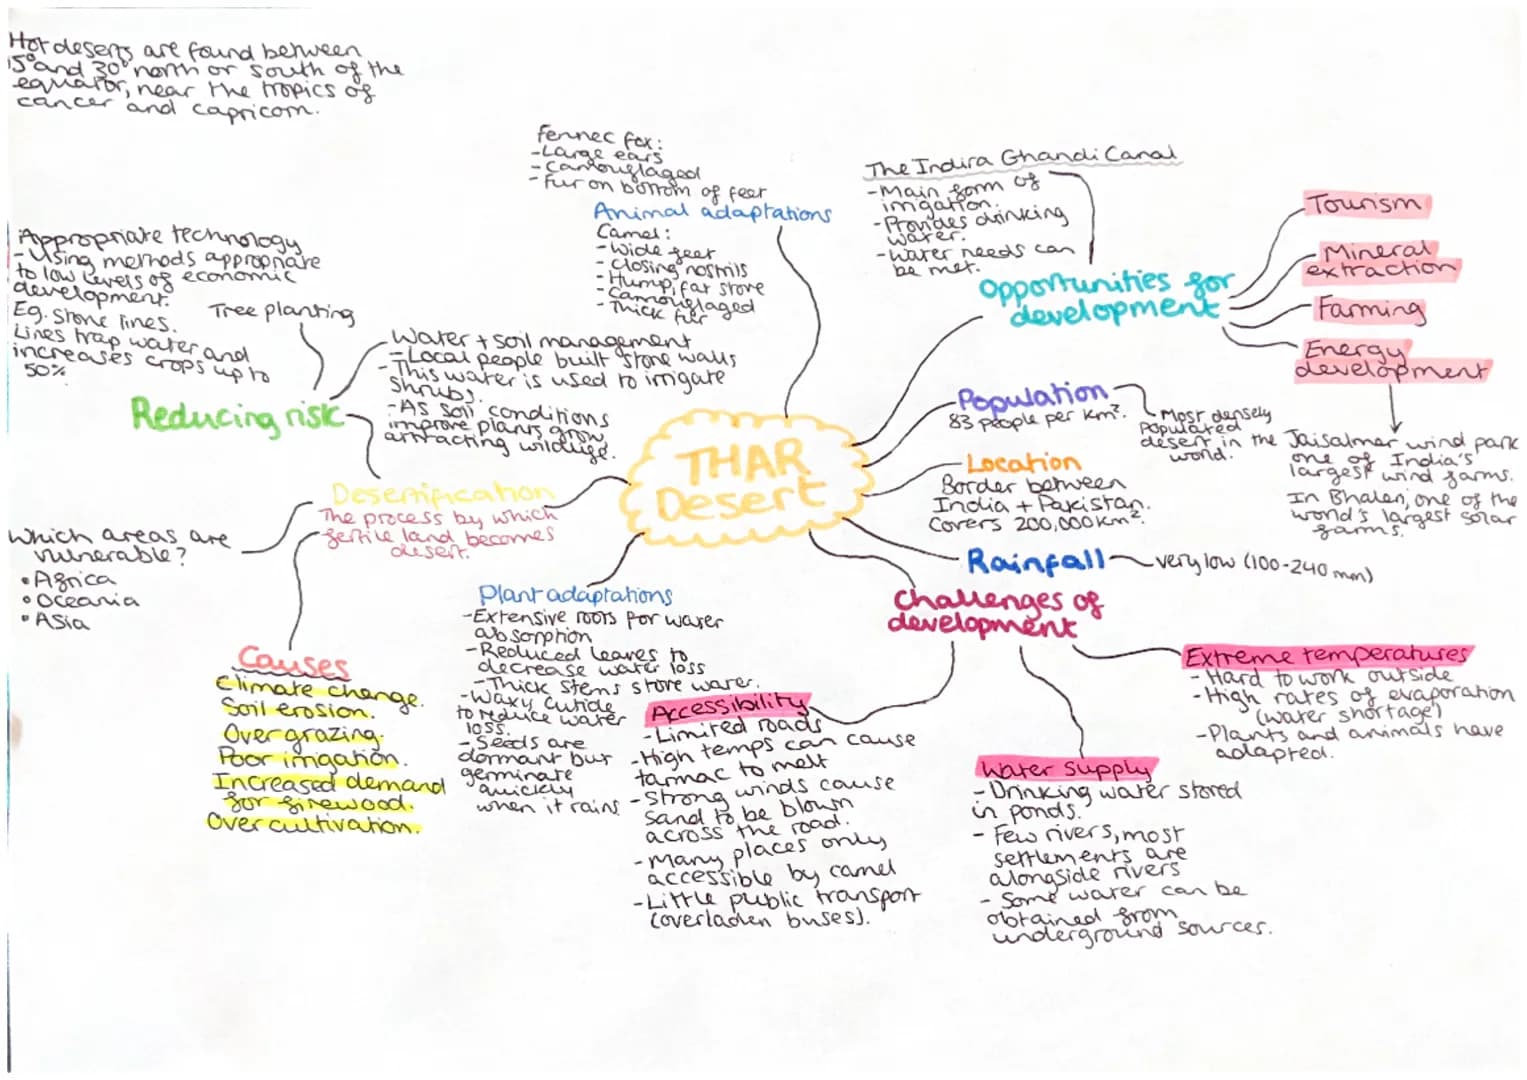 Hot deserts are found between
15° and 30° north or south of the
equator, near the tropics of
cancer and capricorn.
Fennec fox:
-Large ears
-Camouflaged
-Fur on bottom of feet
Animal adaptations
Camel:
-Wide feet
-Closing nostrils
-Hump, fat store
-Camouflaged
-Thick fur
The Indira Ghandi Canal
-Main form of
irrigation.
-Provides drinking
water.
-Water needs can
be met.
Opportunities for
development
Tourism
Mineral
extraction
Farming
Energy
development
Jaisalmer wind park
one of India's
largest wind farms.
In Bhaleri, one of the
world's largest solar
farms.
Appropriate technology
-Using methods appropriate
to low levels of economic
development.
Eg. stone lines.
Lines trap water and
increases crops up to
50%
Tree planting
Water + soil management
-Local people built stone walls
-This water is used to irrigate
shrubs.
-As soil conditions
improve plants grow
attracting wildlife.
Reducing risk
THAR
Desert
Population
83 people per km².
Most densely
populated
desert in the
world.
Location
Border between
India + Pakistan.
Covers 200,000km².
Rainfall
very low (100-240 mm)
Desertification
The process by which
fertile land becomes
desert.
Which areas are
vulnerable?
•Africa
•Oceania
•Asia
Causes
Climate change.
Soil erosion.
Over grazing.
Poor irrigation.
Increased demand
for firewood.
Over cultivation.
Plant adaptations
-Extensive roots for water
absorption
-Reduced leaves to
decrease water loss
-Thick stems store water.
-Waxy cuticle
to reduce water
loss.
-Seeds are
dormant but
germinate
quickly
when it rains
Challenges of
development
Accessibility
-Limited roads
-High temps can cause
tarmac to melt
-Strong winds cause
sand to be blown
across the road.
-Many places only
accessible by camel
-Little public transport
(overladen buses).
Water Supply
-Drinking water stored
in ponds.
- Few rivers, most
settlements are
alongside rivers
- Some water can be
obtained from
underground sources.
Extreme temperatures
- Hard to work outside
-High rates of evaporation
(water shortage)
-Plants and animals have
adapted.